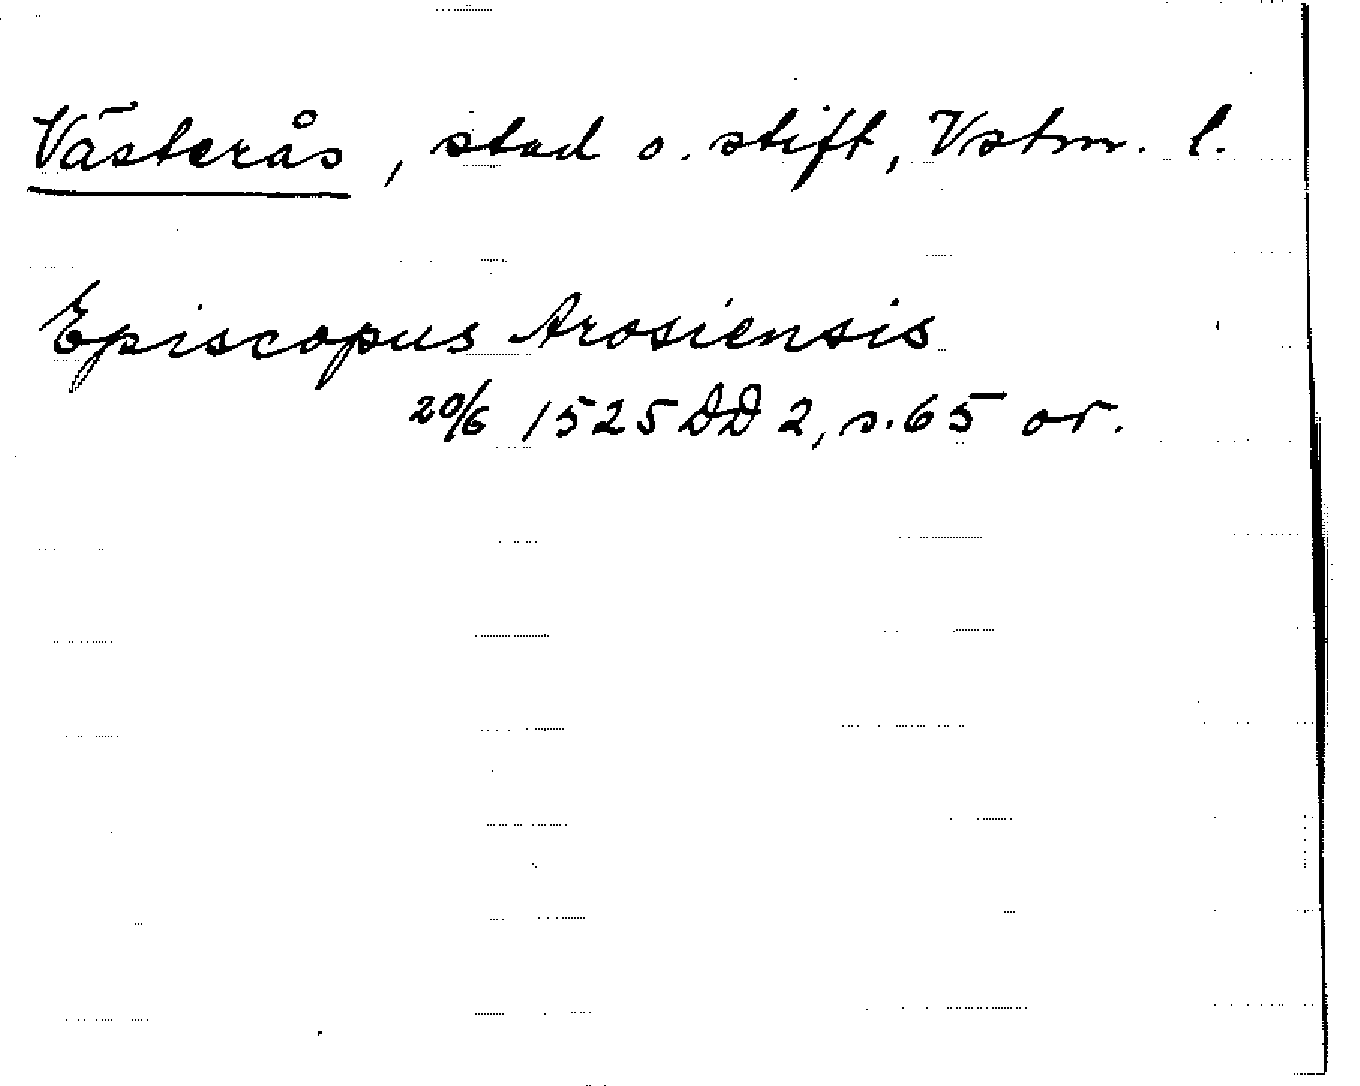 Västerås, stad o. stift, Vstm. l.
Episcopus Arosiensis
20/6 1525 DD 2, s. 65 or.